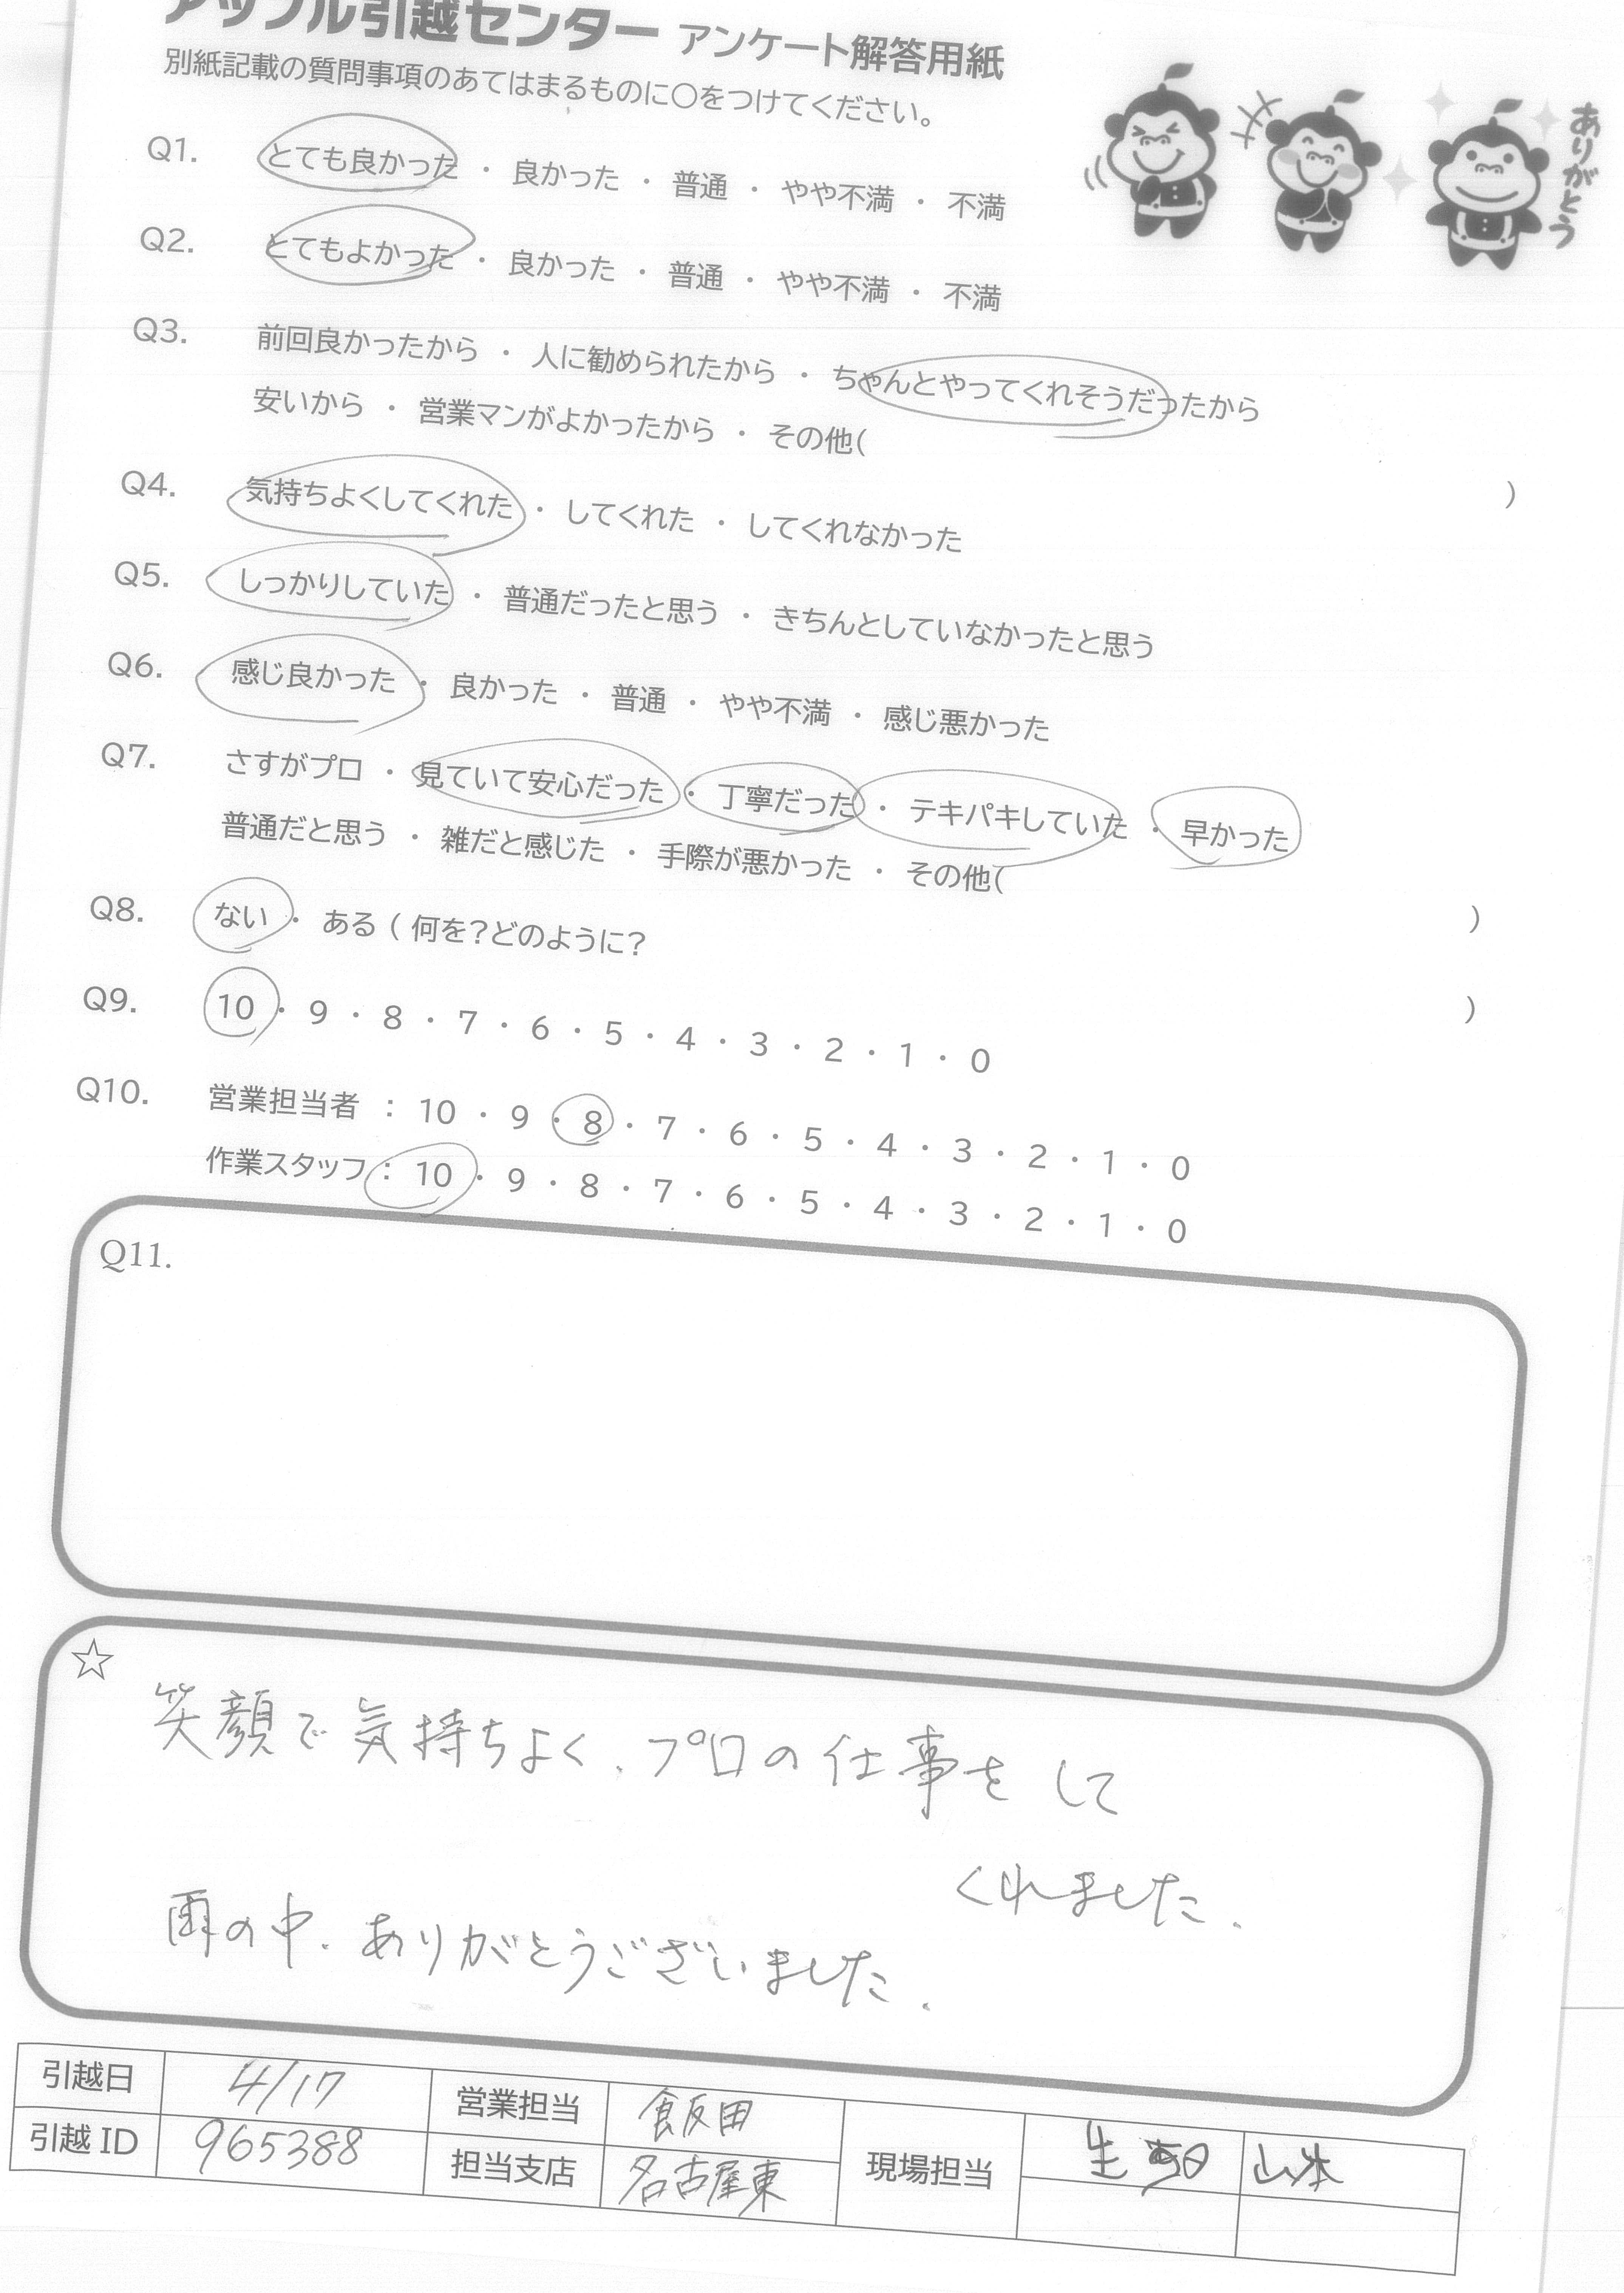 アップル引越センター アンケート解答用紙
別紙記載の質問事項のあてはまるものに〇をつけてください。
ありがとう
Q1. とても良かった ・ 良かった ・ 普通 ・ やや不満 ・ 不満
Q2. とてもよかった ・ 良かった ・ 普通 ・ やや不満 ・ 不満
Q3. 前回良かったから ・ 人に勧められたから ・ ちゃんとやってくれそうだったから
安いから ・ 営業マンがよかったから ・ その他( )
Q4. 気持ちよくしてくれた ・ してくれた ・ してくれなかった
Q5. しっかりしていた ・ 普通だったと思う ・ きちんとしていなかったと思う
Q6. 感じ良かった ・ 良かった ・ 普通 ・ やや不満 ・ 感じ悪かった
Q7. さすがプロ ・ 見ていて安心だった ・ 丁寧だった ・ テキパキしていた ・ 早かった
普通だと思う ・ 雑だと感じた ・ 手際が悪かった ・ その他( )
Q8. ない ・ ある ( 何を?どのように? )
Q9. 10 ・ 9 ・ 8 ・ 7 ・ 6 ・ 5 ・ 4 ・ 3 ・ 2 ・ 1 ・ 0
Q10. 営業担当者 : 10 ・ 9 ・ 8 ・ 7 ・ 6 ・ 5 ・ 4 ・ 3 ・ 2 ・ 1 ・ 0
作業スタッフ : 10 ・ 9 ・ 8 ・ 7 ・ 6 ・ 5 ・ 4 ・ 3 ・ 2 ・ 1 ・ 0
Q11.
☆
笑顔で気持ちよく、プロの仕事をして
くれました.
雨の中、ありがとうございました.
引越日 4/17 営業担当 飯田 現場担当 山本
引越 ID 965388 担当支店 名古屋東